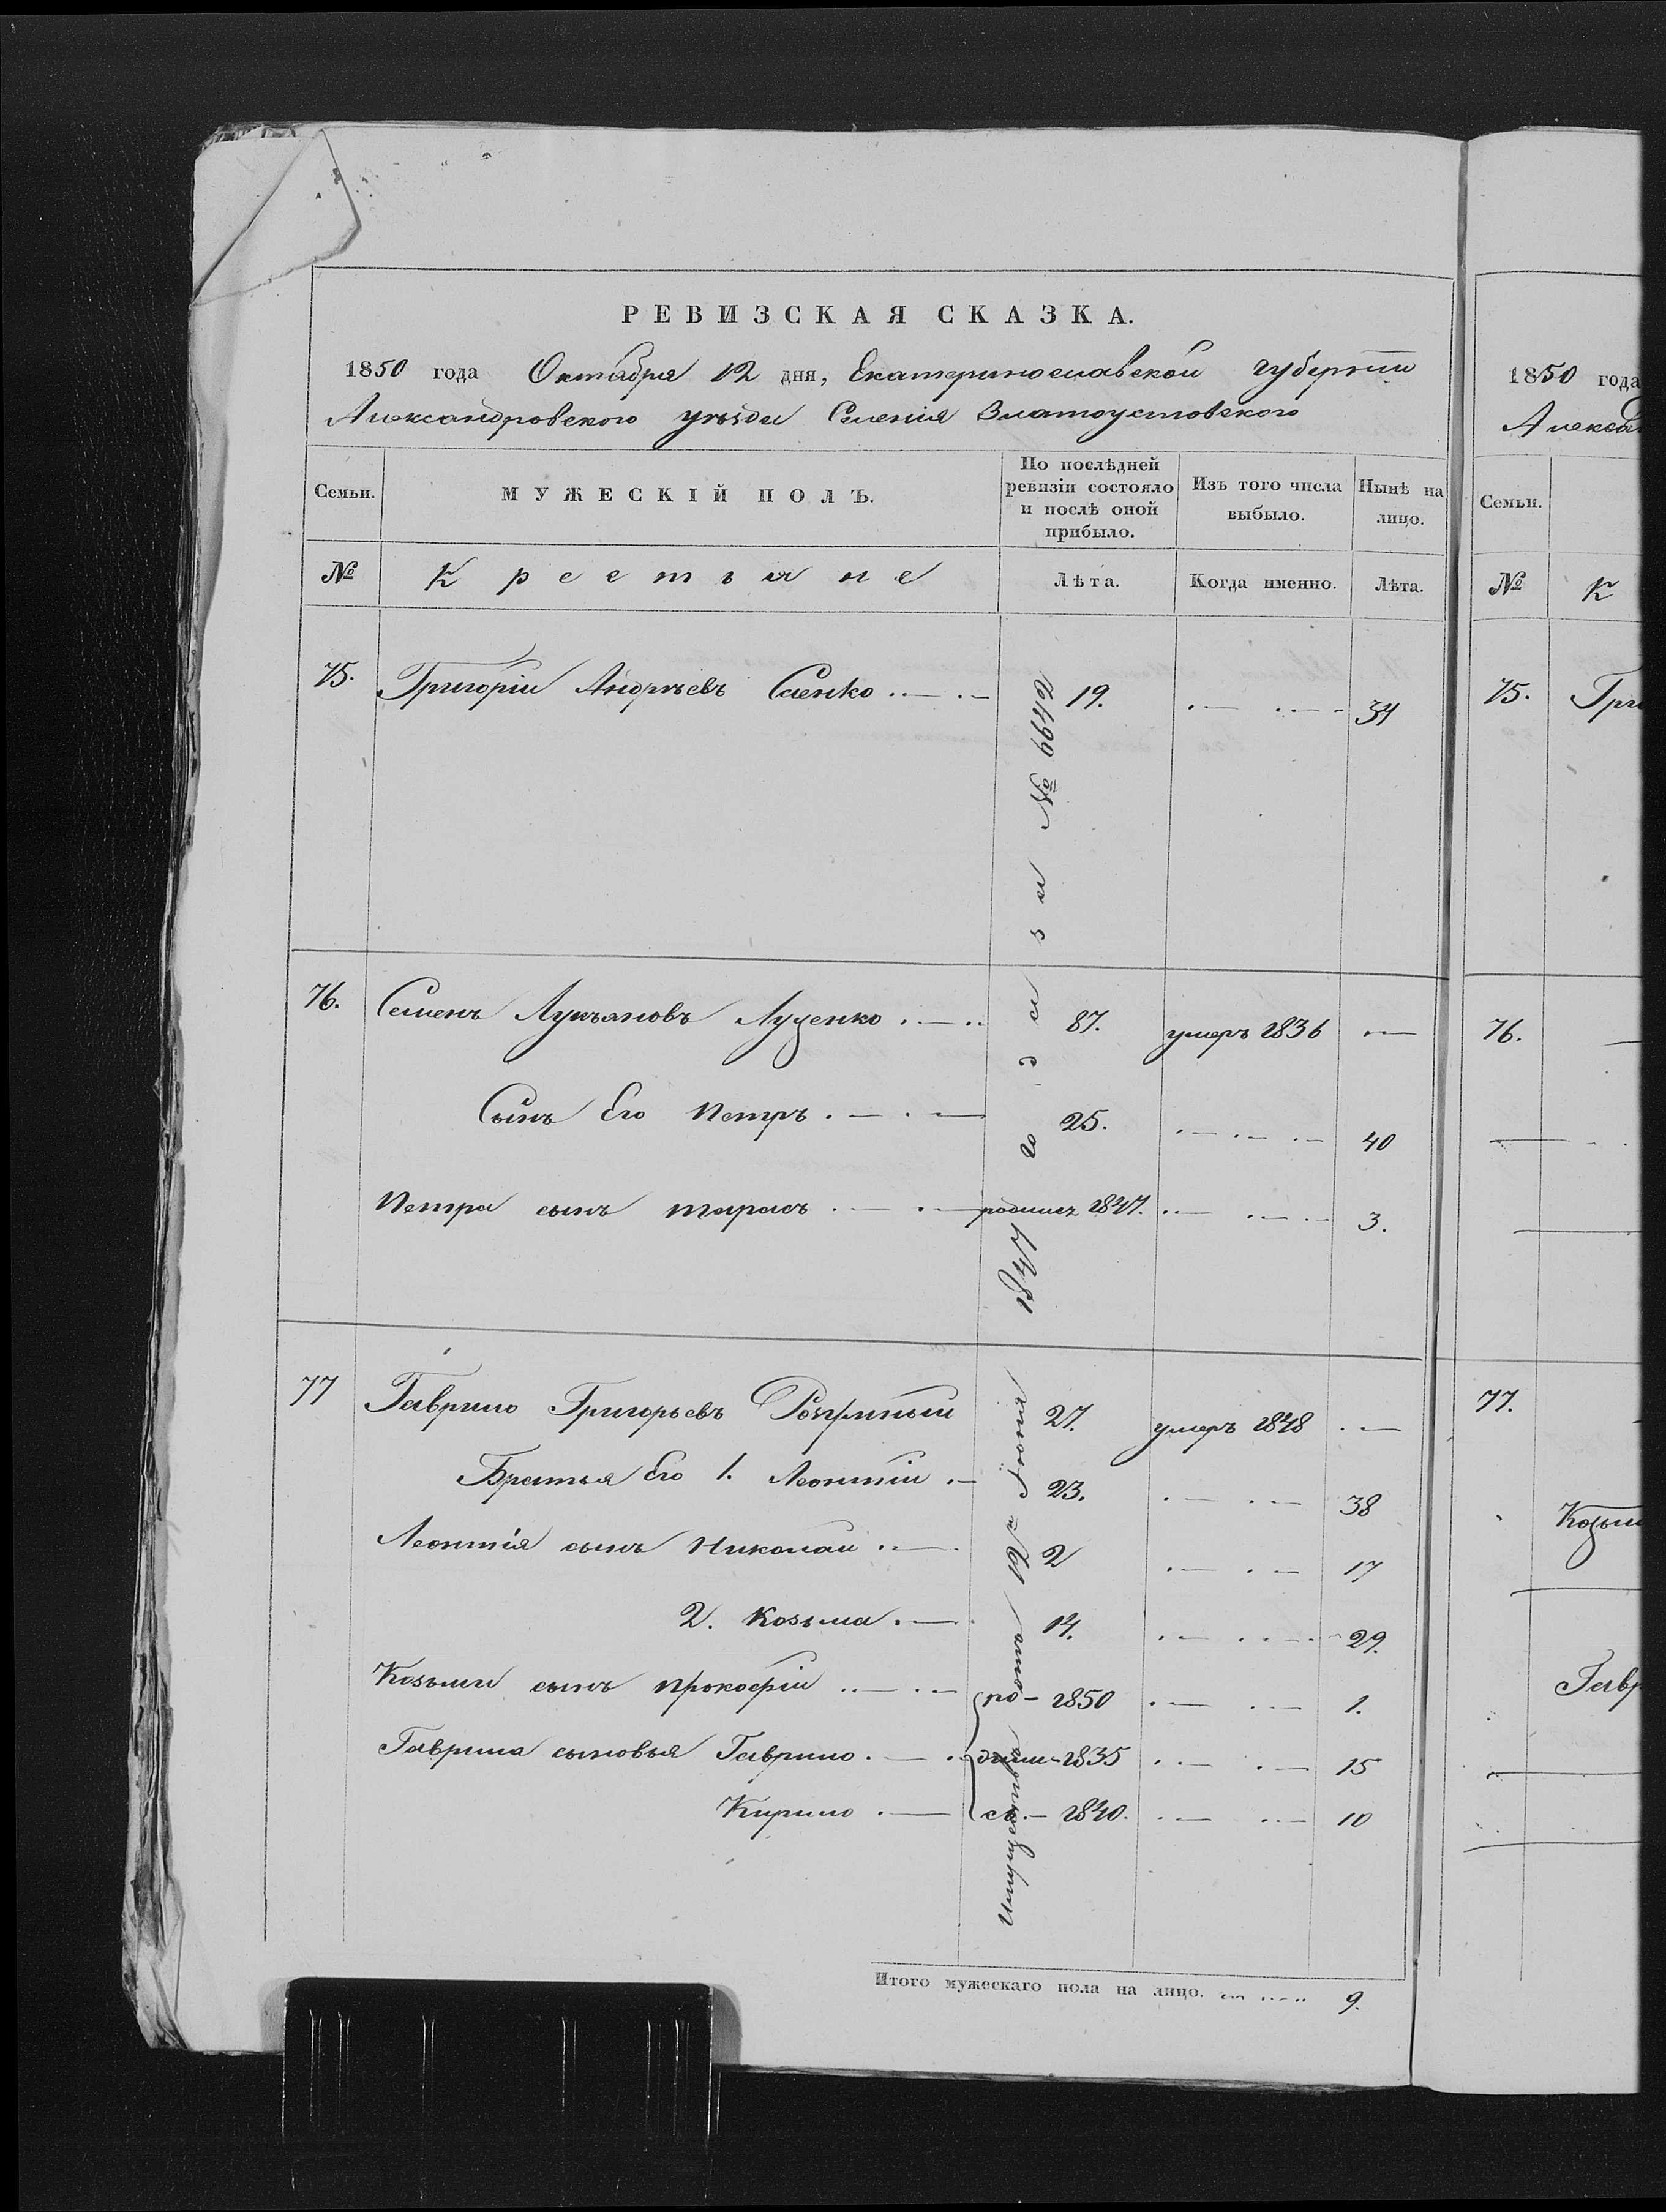 РЕВИЗСКАЯ СКАЗКА.
1850 года Октября 12 дня, Екатеринославской губернии
Александровского уѣзда Селенія Златоустовского
Семьи. МУЖЕСКІЙ ПОЛЪ. По послѣдней ревизіи состояло и послѣ оной прибыло. Изъ того числа выбыло. Нынѣ на лицо.
№ Крестьяне Лѣта. Когда именно. Лѣта.
75. Григорій Андрѣевъ Саенко 19. 34
76. Семенъ Лукъяновъ Луценко 87. умеръ 1836
Сынъ Его Петръ 25. 40
Петра сынъ тарасъ родился 1847. 3.
77 Гаврило Григорьевъ 27. умеръ 1848
Братья Его 1. Леонтій 23. 38
Леонтія сынъ Николай 2 17
2. Козьма 14. 29.
Козьми сынъ прокофій ро- 1850 1.
Гаврила сыновья Гаврило дили- 1835 15
Кирило сь.- 1840. 10
1847 года за № 6649
Итого мужескаго пола на лицо. 9.
1850 года
Алекса
Семьи.
№ К
75. Гри
76.
77.
Козьми
Гавр